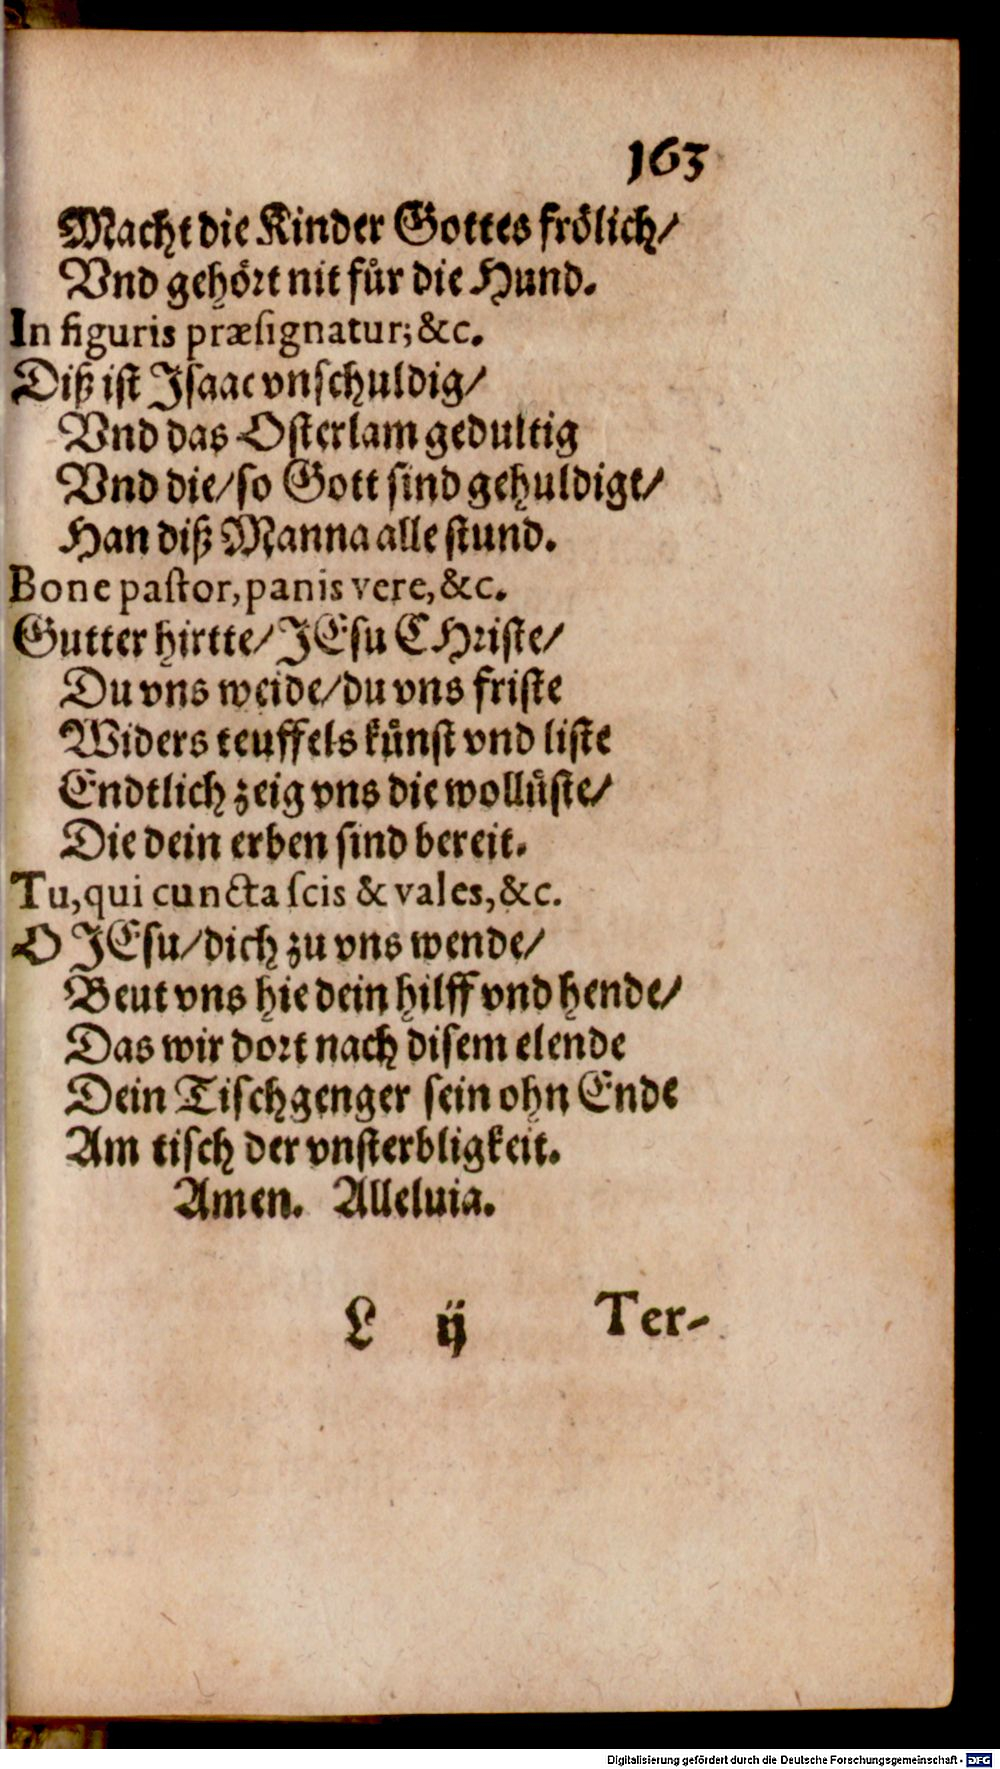 163
Macht die Kinder Gottes frölich/
Vnd gehört nit für die Hund.
In figuris præsignatur; &c.
Diß ist Isaac vnschuldig/
Vnd das Osterlam gedultig
Vnd die/so Gott sind gehuldigt/
Han diß Manna alle stund.
Bone pastor, panis vere, &c.
Gutter hirtte/ JEsu CHriste/
Du vns weide/du vns friste
Widers teuffels künst vnd liste
Endtlich zeig vns die wollüste/
Die dein erben sind bereit.
Tu, qui cuncta scis & vales, &c.
O JEsu/dich zu vns wende/
Beut vns hie dein hilff vnd hende/
Das wir dort nach disem elende
Dein Tischgenger sein ohn Ende
Am tisch der vnsterbligkeit.
Amen. Alleluia.
L ij Ter-
Digitalisierung gefördert durch die Deutsche Forschungsgemeinschaft - DFG